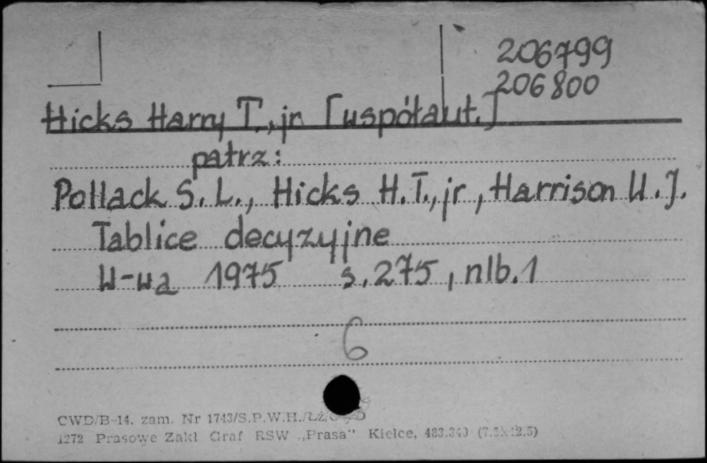 206799
206800
Hicks Harry T., jr [współaut.]
patrz:
Pollack S. L., Hicks H.T., jr, Harrison W. J.
Tablice decyzyjne
W-wa 1975 s. 275, nlb. 1
6
CWD/B-14. zam. Nr 1743/S.P.W.H./
1272 Prasowe Zakł Graf RSW „Prasa" Kielce,